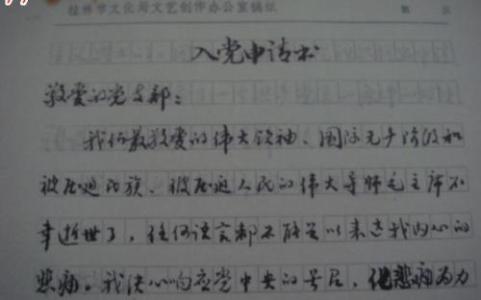 桂林市文化局文艺创作办公室稿纸
入党申请书
敬爱的党支部：
我们最敬爱的伟大领袖、国际无产阶级和
被压迫民族、被压迫人民的伟大导师毛主席不
幸逝世了，任何语言都不能足以表达我内心的
悲痛。我决心响应党中央的号召，化悲痛为力